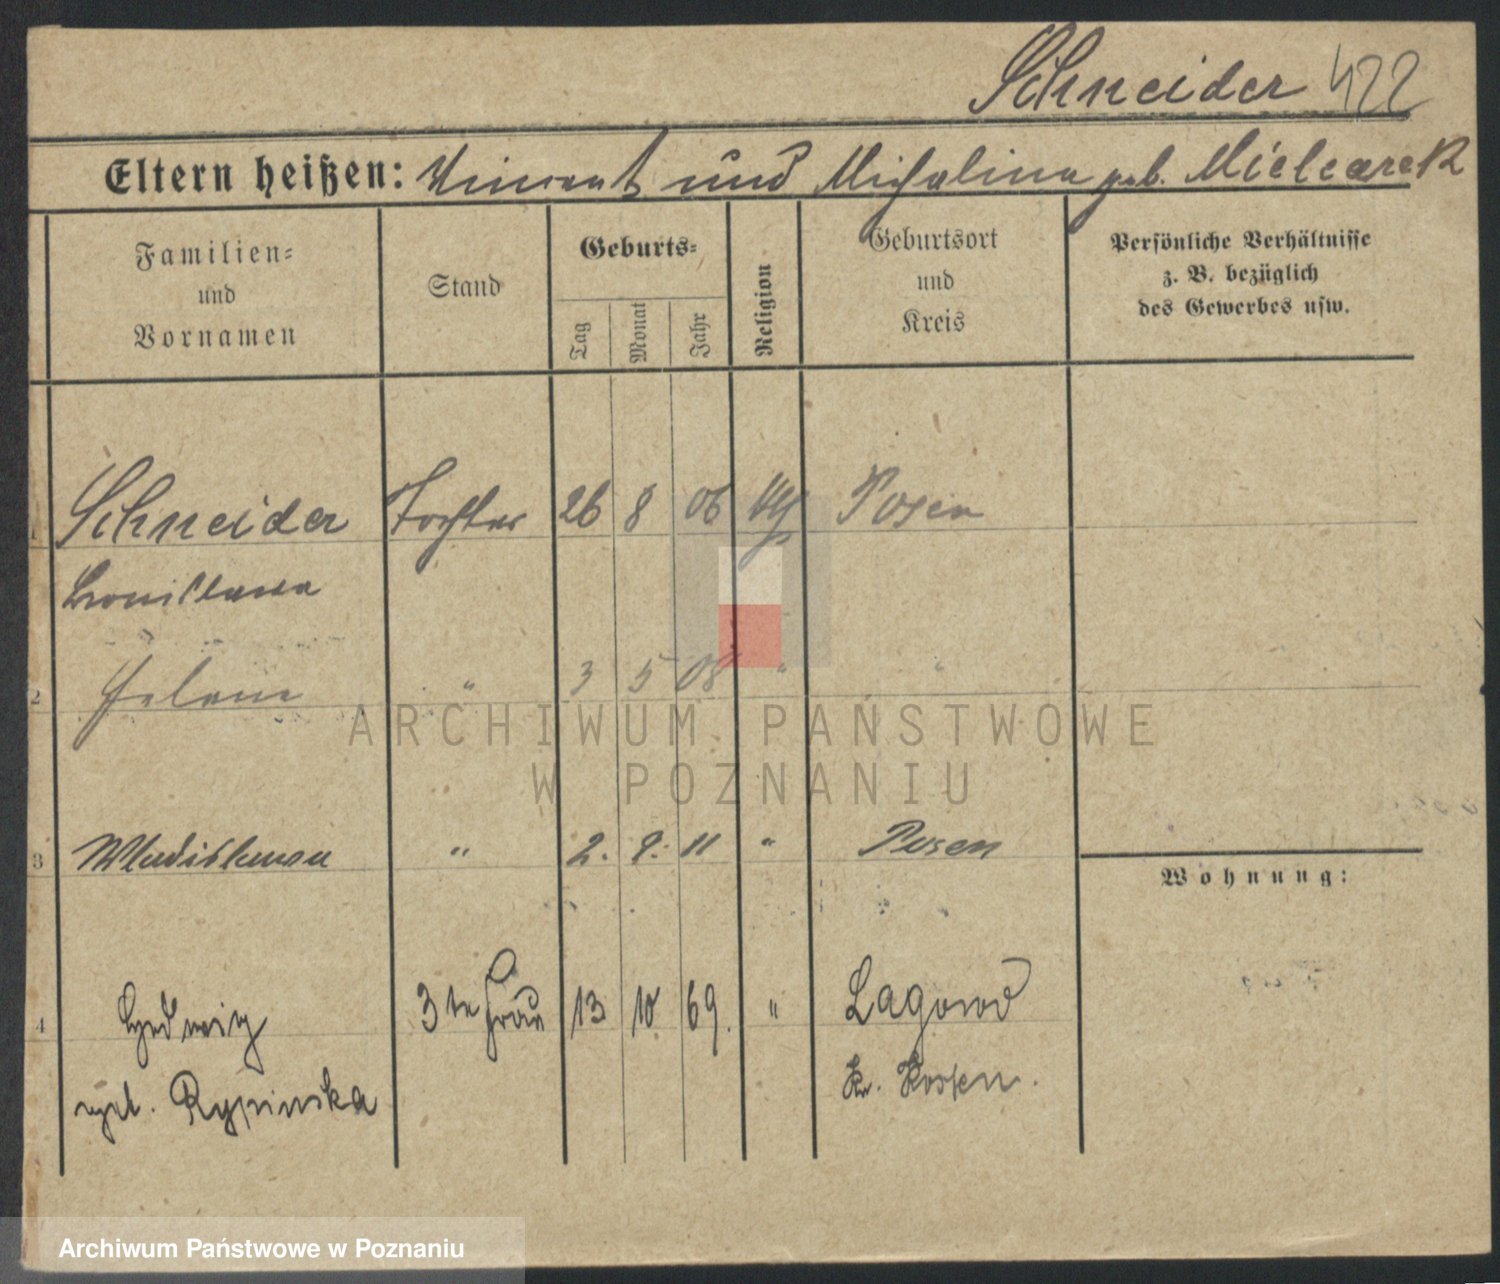 Schneider 422
Eltern heißen: Vincent und Michalina geb. Mielcarek
Familien=
und
Vornamen
Stand
Geburts=
Tag
Monat
Jahr
Religion
Geburtsort
und
Kreis
Persönliche Verhältnisse
z. B. bezüglich
des Gewerbes usw.
1 Schneider Tochter 26 8 06 kth Posen
Bronislawa
2 Helene " 3 5 08 " "
3 Wladislawa " 2. 9. 11 " Posen
Wohnung:
4 Hedwig 3te Frau 13 10 69. " Lagowo
geb. Rypinska Kr. Kosten.
ARCHIWUM PAŃSTWOWE
W POZNANIU
Archiwum Państwowe w Poznaniu